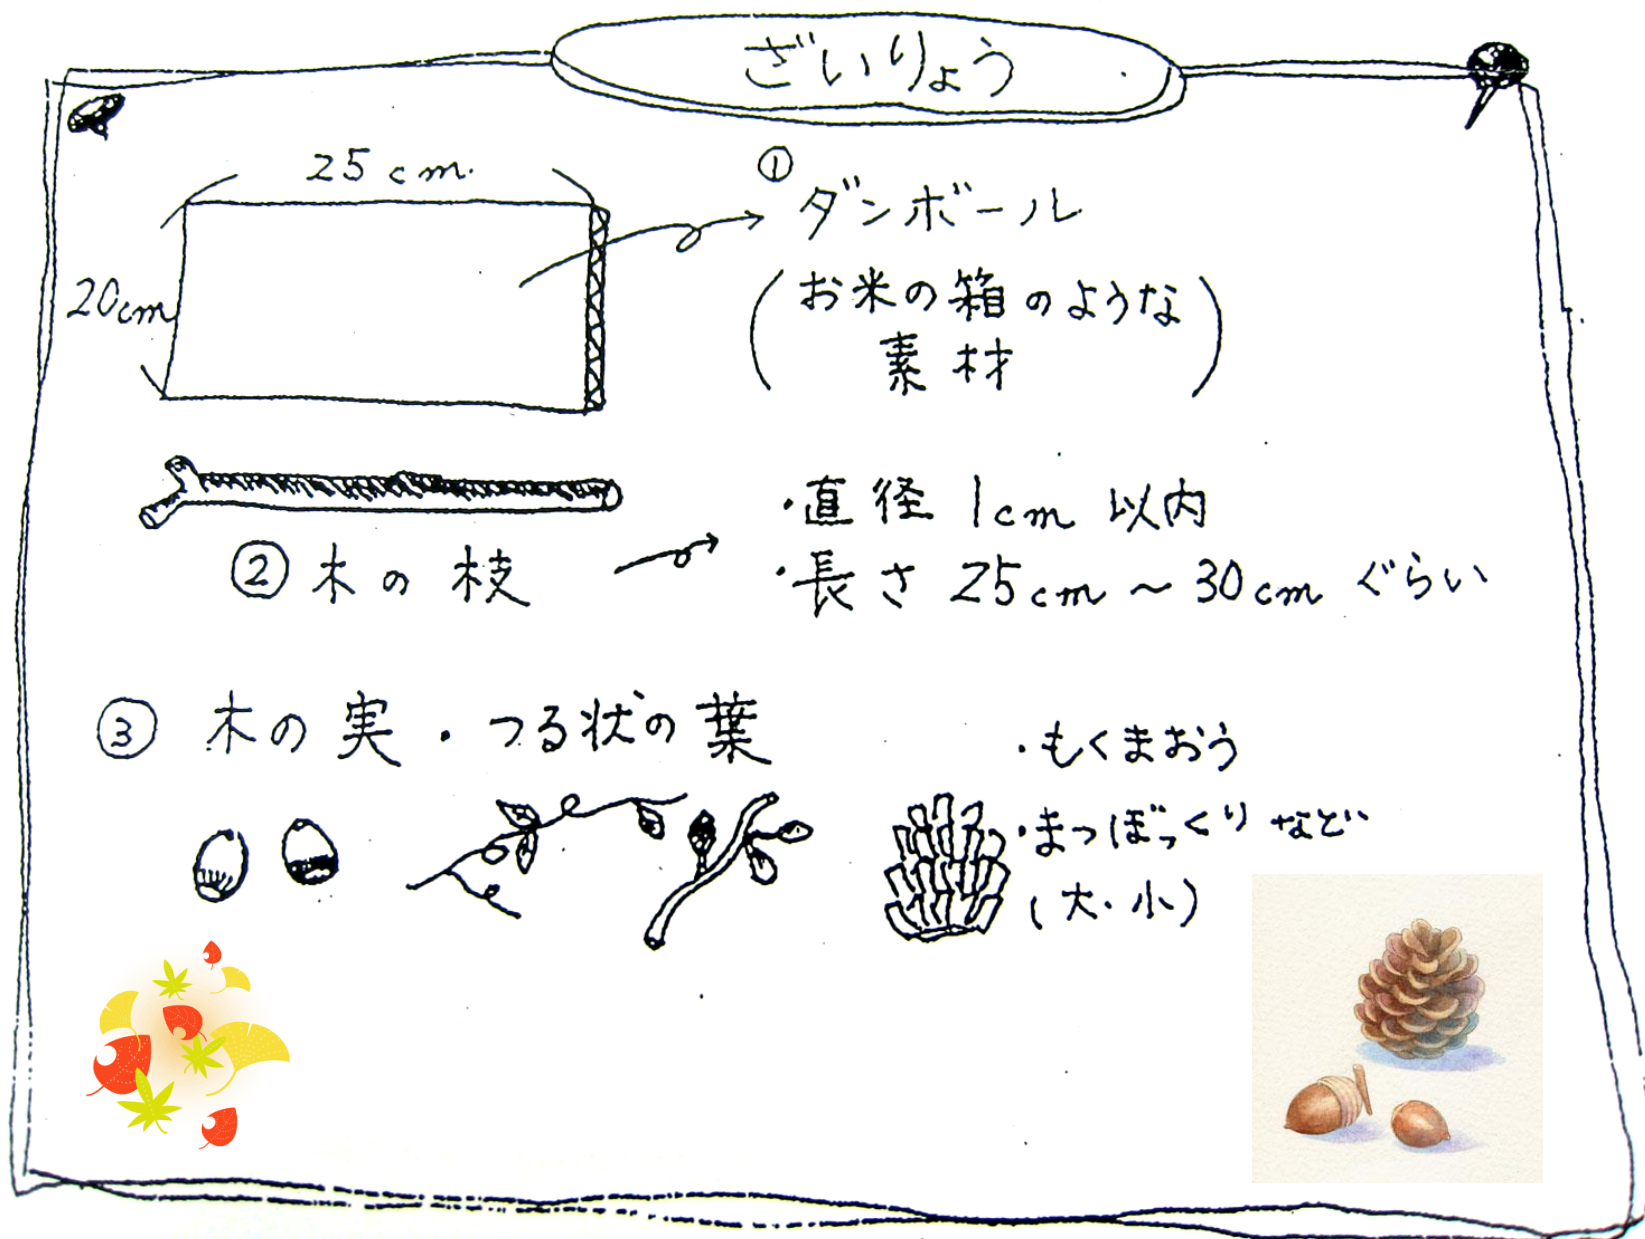 ざいりょう
25cm
20cm
①
ダンボール
(お米の箱のような
素材)
②木の枝
・直径 1cm 以内
・長さ 25cm～30cm ぐらい
③ 木の実・つる状の葉
・もくまおう
・まつぼっくり など
(大・小)